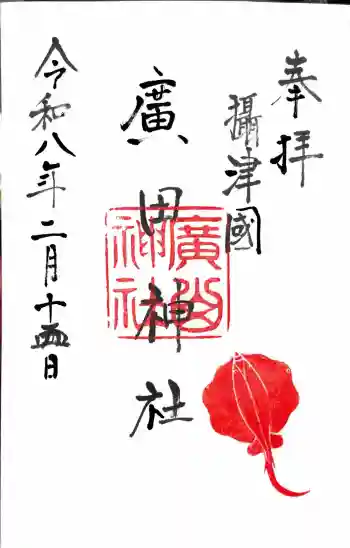 奉拝
攝津國
廣田神社
廣田神社
令和八年二月十四日